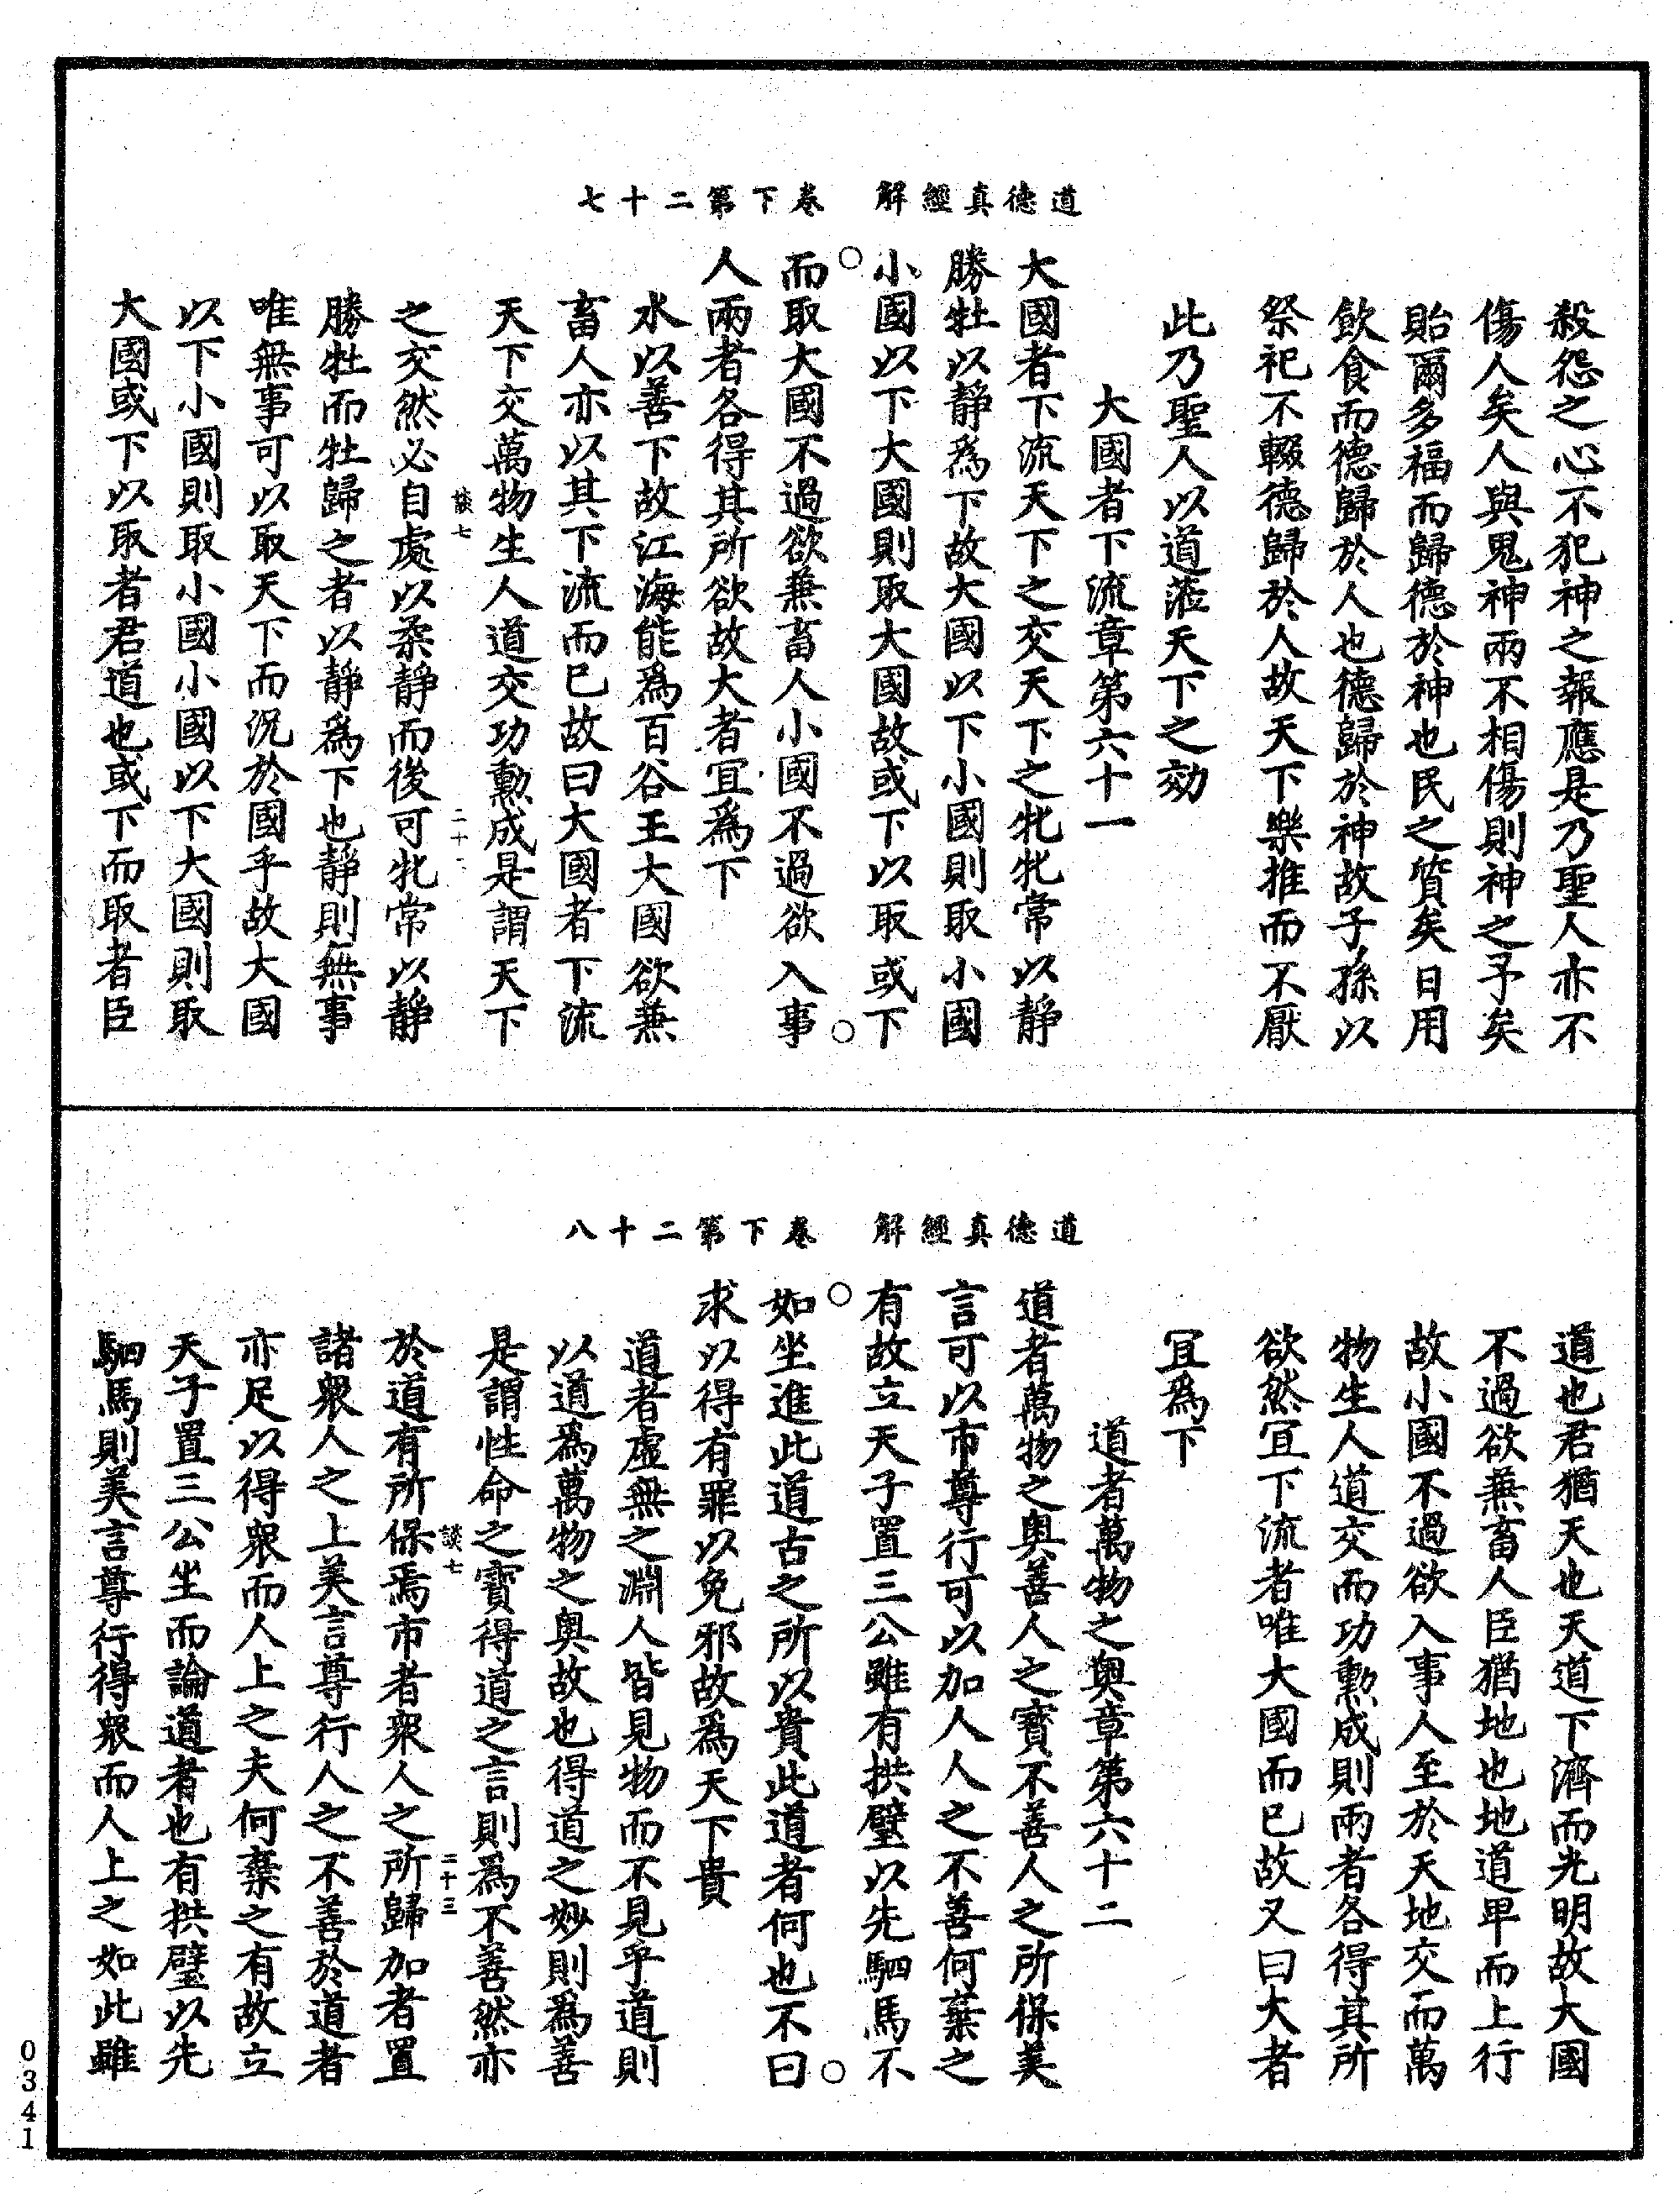 道德真經解　卷下第二十七
殺怨之心不犯神之報應是乃聖人亦不
傷人矣人與鬼神兩不相傷則神之予矣
貽爾多福而歸德於神也民之質矣日用
飲食而德歸於人也德歸於神故子孫以
祭祀不輟德歸於人故天下樂推而不厭
此乃聖人以道蒞天下之効
大國者下流章第六十一
大國者下流天下之交天下之牝牝常以靜
勝牡以靜爲下故大國以下小國則取小國
小國以下大國則取大國故或下以取或下
○而取大國不過欲兼畜人小國不過欲入事○
人兩者各得其所欲故大者宜爲下
水以善下故江海能爲百谷王大國欲兼
畜人亦以其下流而已故曰大國者下流
天下交萬物生人道交功勳成是謂天下
談七　二十二
之交然必自處以柔靜而後可牝常以靜
勝牡而牡歸之者以靜爲下也靜則無事
唯無事可以取天下而況於國乎故大國
以下小國則取小國小國以下大國則取
大國或下以取者君道也或下而取者臣
道德真經解　卷下第二十八
道也君猶天也天道下濟而光明故大國
不過欲兼畜人臣猶地也地道卑而上行
故小國不過欲入事人至於天地交而萬
物生人道交而功勳成則兩者各得其所
欲然宜下流者唯大國而已故又曰大者
宜爲下
道者萬物之奧章第六十二
道者萬物之奧善人之寶不善人之所保美
言可以市尊行可以加人人之不善何棄之
有故立天子置三公雖有拱璧以先駟馬不
○如坐進此道古之所以貴此道者何也不曰○
求以得有罪以免邪故爲天下貴
道者虛無之淵人皆見物而不見乎道則
以道爲萬物之奧故也得道之妙則爲善
是謂性命之寶得道之言則爲不善然亦
談七　二十三
於道有所保焉市者衆人之所歸加者置
諸衆人之上美言尊行人之不善於道者
亦足以得衆而人上之夫何棄之有故立
天子置三公坐而論道者也有拱璧以先
駟馬則美言尊行得衆而人上之如此雖
0341